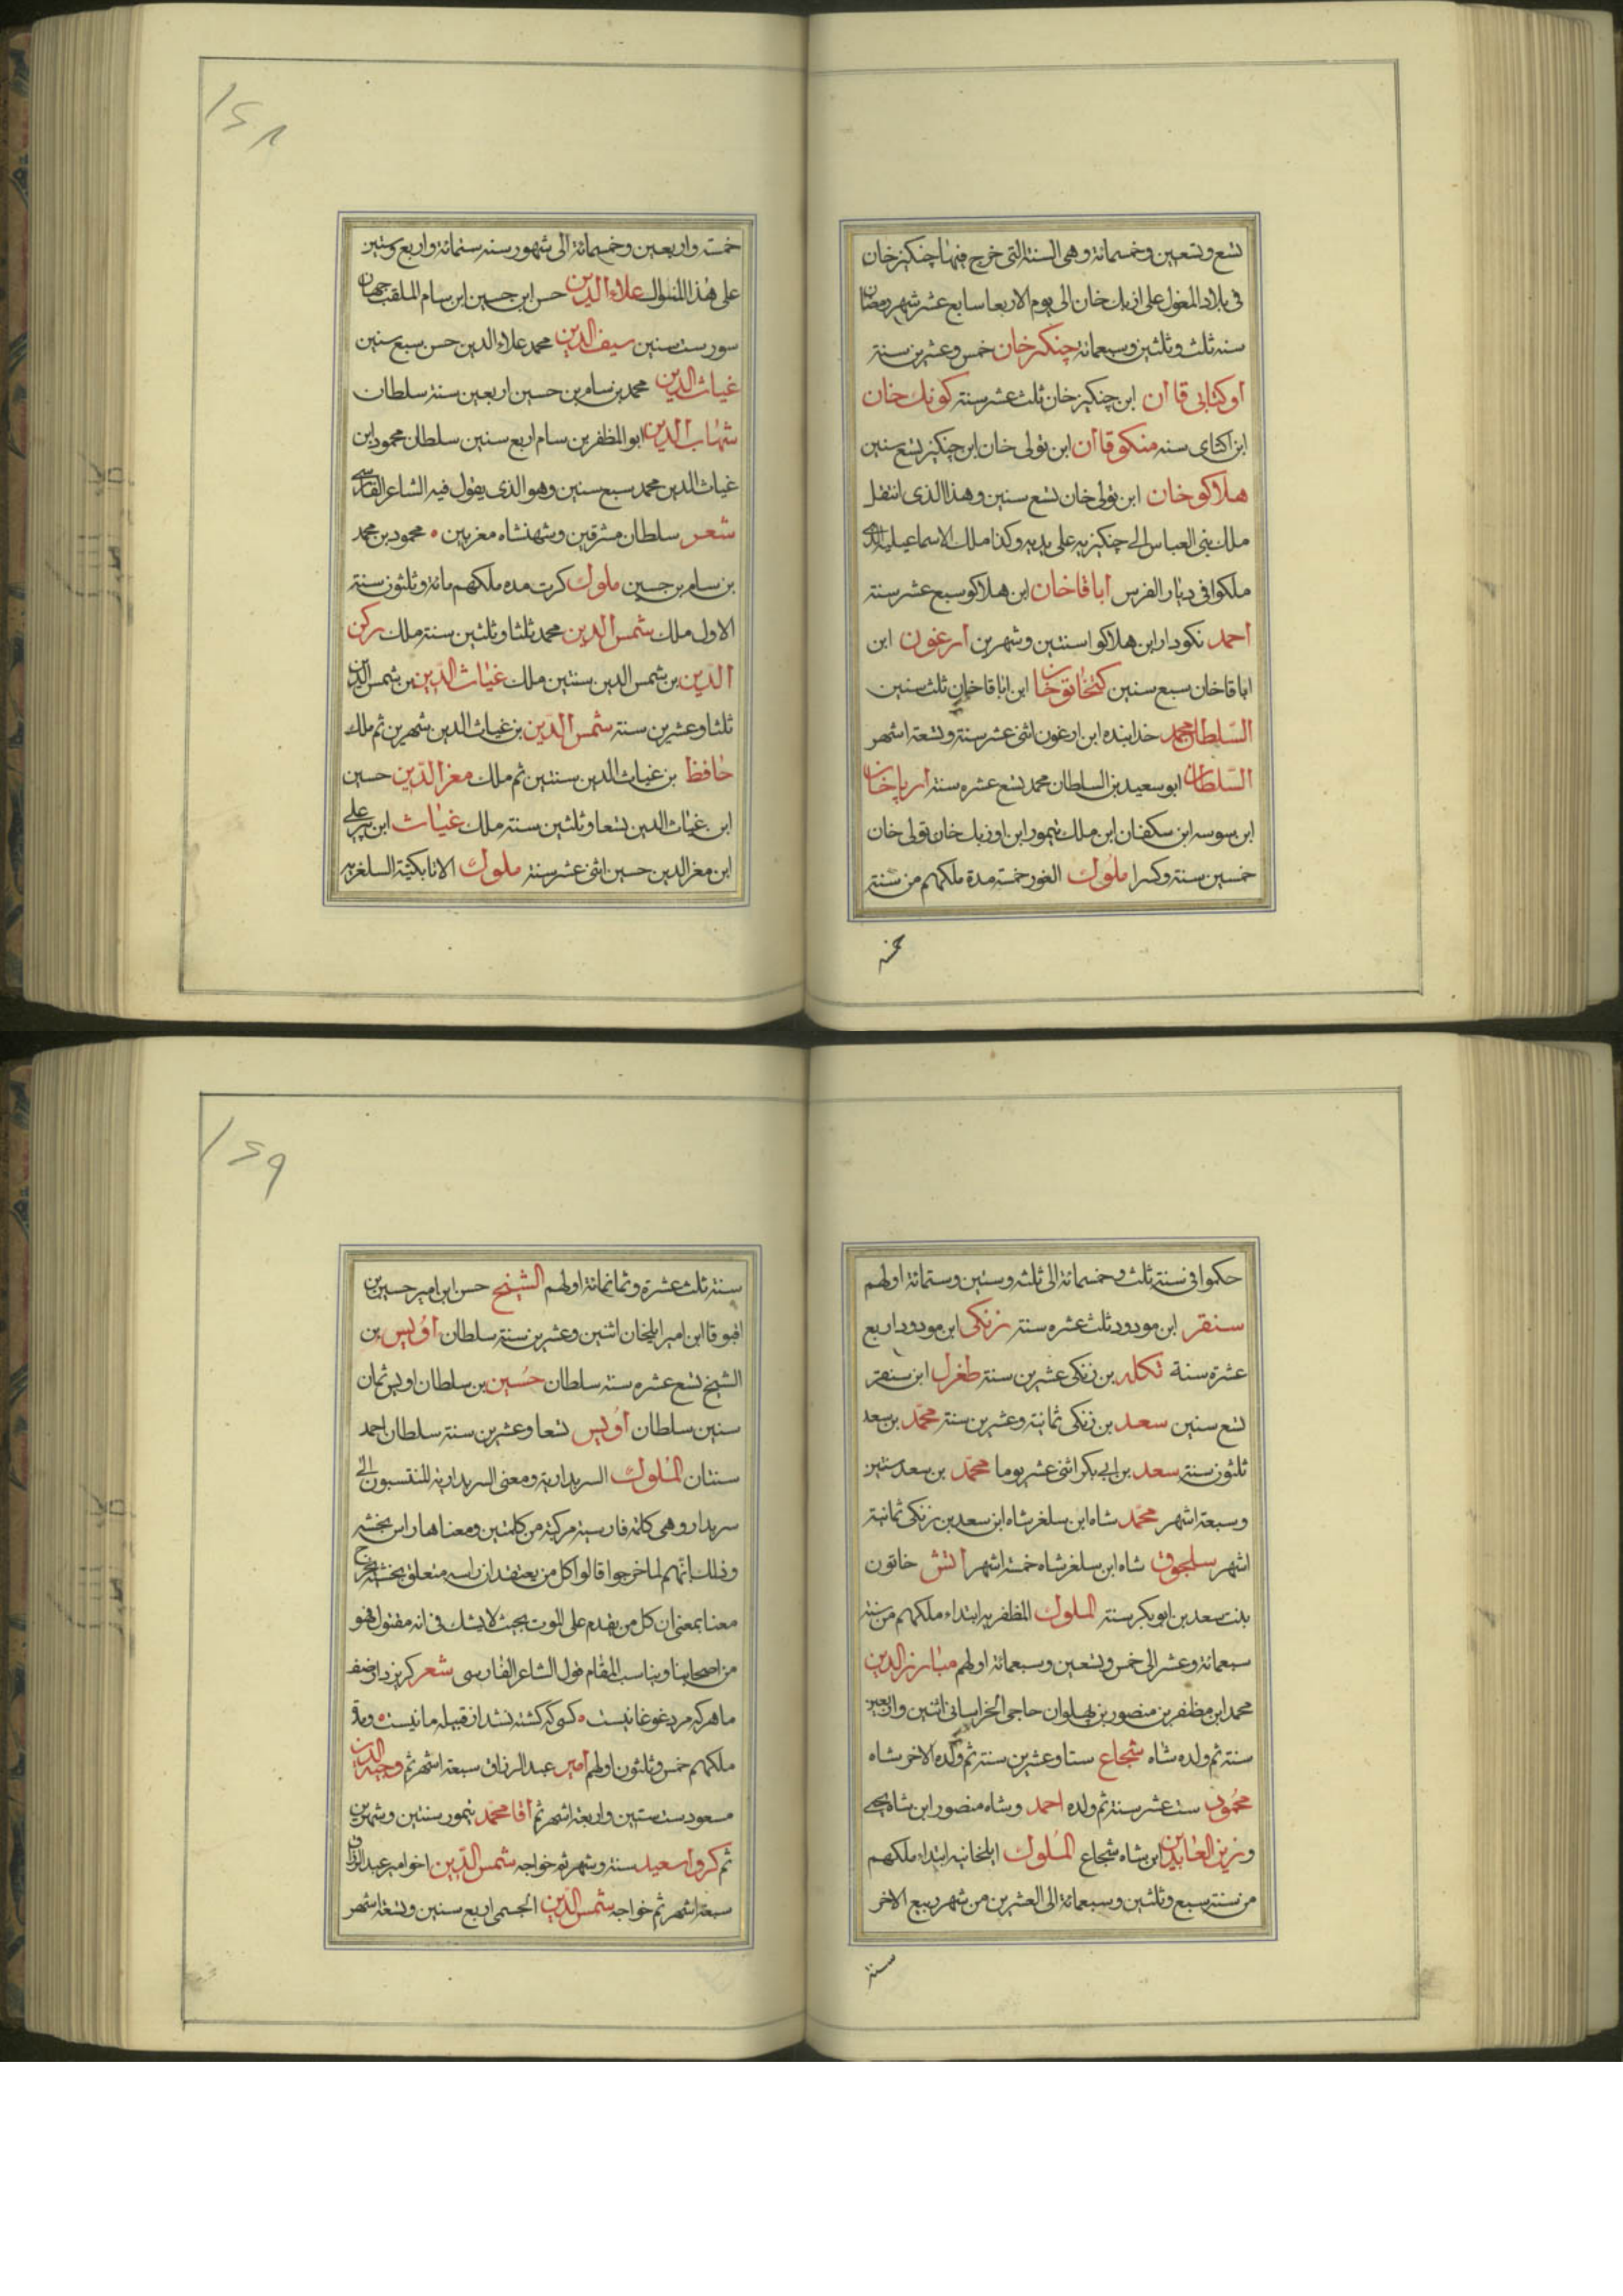 تسع وتسعين وخمسمائة وهى السنة التى خرج فيها چنكيز خان
فى بلاد المغول على ازبك خان الى يوم الاربعا سابع عشر شهر رمضان
سنه ثلث وثلثين وسبعمائة چنكيز خان خمس وعشرين سنة
اوكتاى قاان ابن چنكيز خان ثلث عشر سنة كونك خان
ابن اكتاى سنه منكو قاان ابن تولى خان ابن چنكيز تسع سنين
هلاكو خان ابن تولى خان تسع سنين وهذا الذى انتقل
ملك بنى العباس الى چنكيزيه على يديه وكذا ملك الاسماعيلية الذى
ملكوا فى ديار الفرس اباقا خان ابن هلاكو سبع عشر سنة
احمد نكودار ابن هلاكو اسنتين وشهرين ارغون ابن
اباقا خان سبع سنين كنخاتو خان ابن اباقا خان ثلث سنين
السلطان محمد خدابنده ابن ارغون اثنى عشر سنة وتسعة اشهر
السلطان ابو سعيد بن السلطان محمد تسع عشره سنة ارپا خان
ابن سوسه ابن سكفان ابن ملك تيمور ابن اوزبك خان تولى خان
خمسين سنة وكسرا ملوك الغور خمسة مدة ملكهم من سنة
خمسة
١٢٨
خمسة واربعين وخمسمائة الى شهور سنه ستمائة واربع وستين
على هذا المنوال علاء الدين حسن ابن حسين ابن سام الملقب جهان
سور ست سنين سيف الدين محمد علاء الدين حسن سبع سنين
غياث الدين محمد بن سام بن حسين اربعين سنة سلطان
شهاب الدين ابو المظفر بن سام اربع سنين سلطان محمود ابن
غياث الدين محمد سبع سنين وهو الذى يقول فيه الشاعر الفارسى
شعر سلطان مشرقين وشهنشاه مغربين ٥ محمود بن محمد
بن سام بن حسين ملوك كرت مده ملكهم مائة وثلثون سنة
الاول ملك شمس الدين محمد ثلثا وثلثين سنة ملك ركن
الدين بن شمس الدين سنتين ملك غياث الدين بن شمس الدين
ثلثا وعشرين سنة شمس الدين بن غياث الدين شهرين ثم ملك
حافظ بن غياث الدين سنتين ثم ملك معز الدين حسين
ابن غياث الدين تسعا وثلثين سنة ملك غياث ابن پير على
ابن معز الدين حسين اثنى عشر سنة ملوك الاتابكية السلغريه
حكموا فى سنة ثلث وخمسمائة الى ثلثه وستين وستمائة اولهم
سنقر ابن مودود ثلث عشره سنة زنكى ابن مودود اربع
عشرة سنة تكله بن زنكى عشرين سنة طغرل ابن سنقر
تسع سنين سعد بن زنكى ثمانية وعشرين سنة محمد بن سعد
ثلثون سنة سعد بن ابى بكر اثنى عشر يوما محمد بن سعد سنتين
وسبعة اشهر محمد شاه ابن سلغر شاه ابن سعد بن زنكى ثمانية
اشهر سلجوق شاه ابن سلغر شاه خمسة اشهر اتش خاتون
بنت سعد بن ابو بكر سنة الملوك المظفريه ابتداء ملكهم من سنة
سبعمائة وعشر الى خمس وتسعين وسبعمائة اولهم مبارز الدين
محمد ابن مظفر بن منصور بن پهلوان حاجى الخراسانى اثنين واربعين
سنة ثم ولده شاه شجاع ستا وعشرين سنة ثم ولده الاخر شاه
محمود ست عشر سنة ثم ولده احمد وشاه منصور ابن شاه يحيى
وزين العابدين ابن شاه شجاع الملوك ايلخانيه ابتداء ملكهم
من سنة سبع وثلثين وسبعمائة الى العشرين من شهر ربيع الاخر
سنة
١٢٩
سنة ثلث عشرة وثمانمائة اولهم الشيخ حسن ابن امير حسين بن
اقبوقا ابن امير ايلخان اثنين وعشرين سنة سلطان اويس بن
الشيخ تسع عشره سنة سلطان حسين بن سلطان اويس ثمان
سنين سلطان اويس تسعا وعشرين سنة سلطان احمد
سنتان الملوك السربدارية ومعنى السربدارية المنتسبون الى
سربدار وهى كلمة فارسية مركبة من كلمتين ومعناها راس بخشبه
وذلك انهم لما خرجوا قالوا كل من يعتقد ان راسه متعلق بخشبة خرج
معنا بمعنى ان كل من يقدم على الموت بحيث لا يشك فى انه مقتول فهو
من اصحابنا ويناسب المقام قول الشاعر الفارسى شعر كريزد از صف
ما هر كه مرد غوغا نيست ٥ كسى كه كشته نشد از قبيله ما نيست ٥ ومدة
ملكهم خمس وثلثون اولهم امير عبد الرزاق سبعة اشهر ثم وجيه الدين
مسعود ست سنين واربعة اشهر ثم اقا محمد تيمور سنتين وشهرين
ثم كروا سعيد سنة وشهر ثم خواجه شمس الدين اخو امير عبد الرزاق
سبعة اشهر ثم خواجه شمس الدين الجسمى اربع سنين وتسعة اشهر